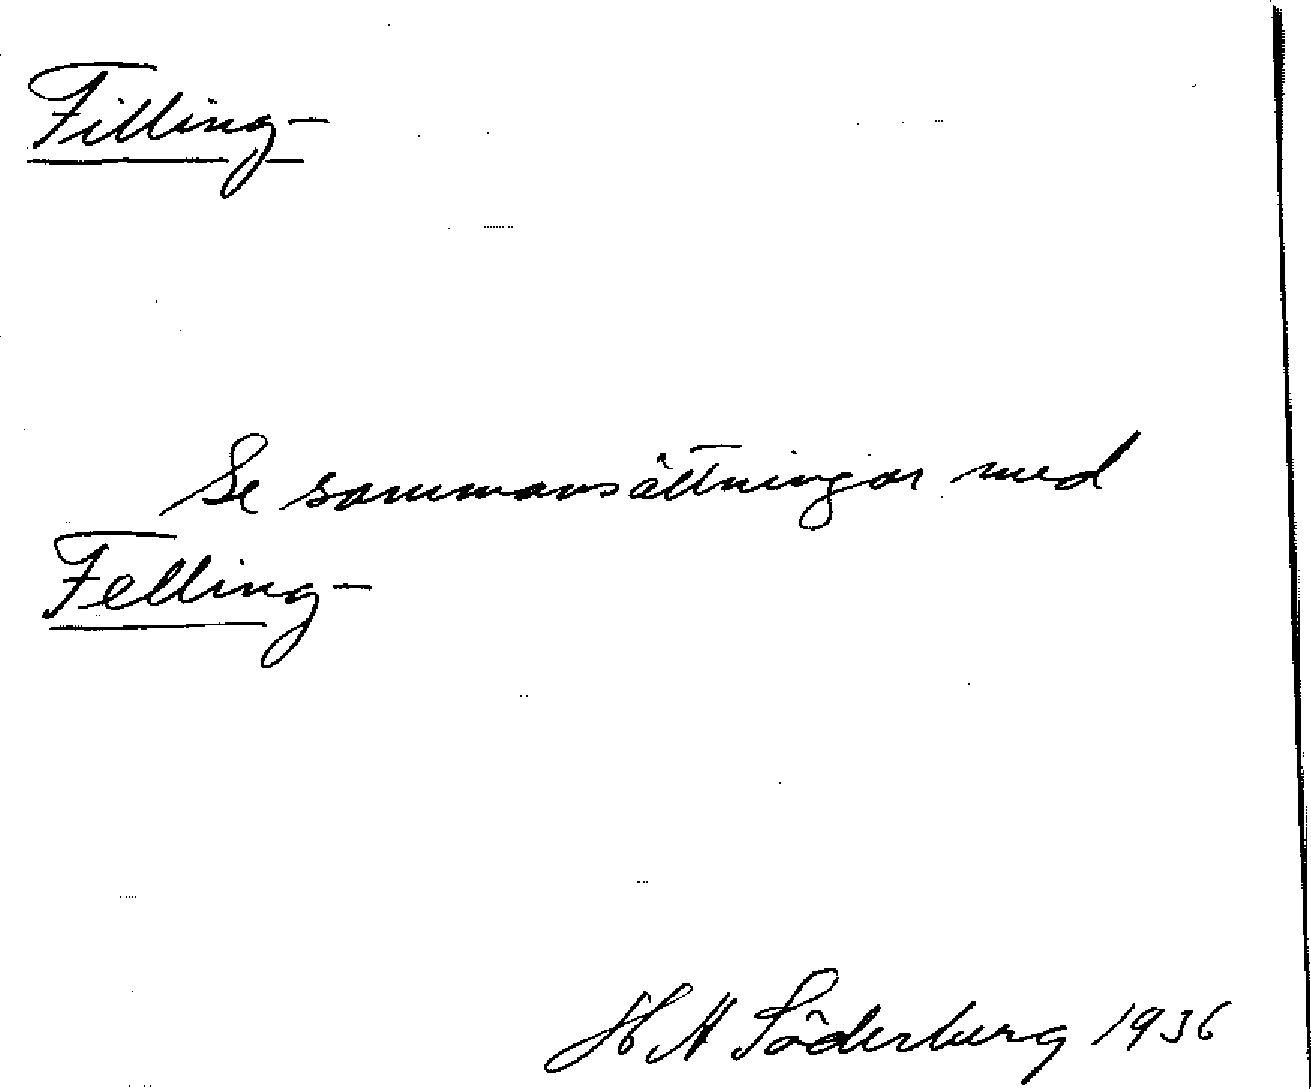 Filling-
Se sammansättningar med
Felling-
H A Söderberg 1936